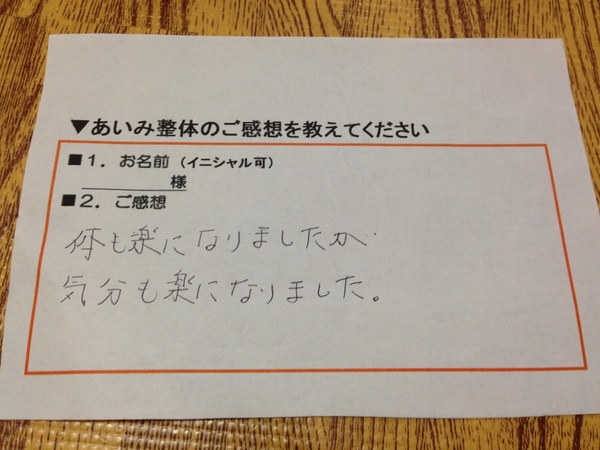 ▼あいみ整体のご感想を教えてください
■1．お名前（イニシャル可）
様
■2．ご感想
体も楽になりましたが
気分も楽になりました。